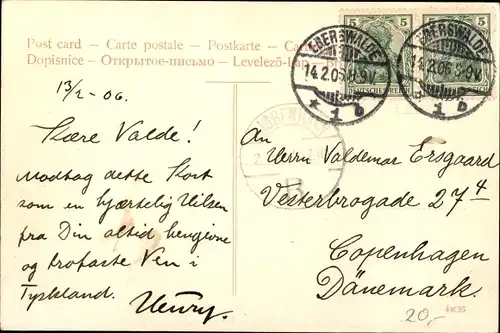 Post card – Carte postale – Postkarte – Car
Dopisnice – Открытое-письмо – Levelező-Lap –
5 5
EBERSWALDE
14.2.06.8-9V.
* 1 b
EBERSWALDE
14.2.06.8-9V.
* 1 b
DEUTSCHES REICH
13/2 - 06.
Kære Valde!
Modtag dette Kort
som en hjærtelig Hilsen
fra Din altid hengivne
og trofaste Ven i
Tyskland.
Henry.
An
Herrn Valdemar Ersgaard
Vesterbrogade 27 4
Copenhagen
Dänemark.
20,-